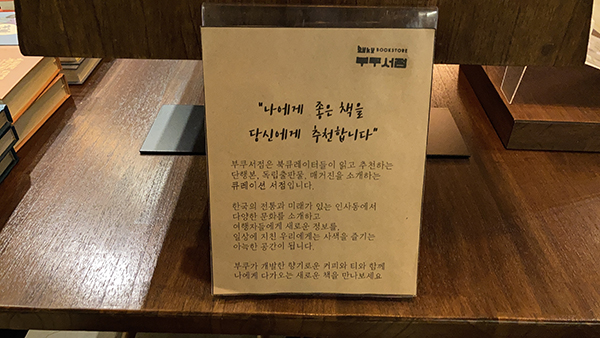 BOOKSTORE
부쿠서점
"나에게 좋은 책을
당신에게 추천합니다"
부쿠서점은 북큐레이터들이 읽고 추천하는
단행본, 독립출판물, 매거진을 소개하는
큐레이션 서점입니다.
한국의 전통과 미래가 있는 인사동에서
다양한 문화를 소개하고
여행자들에게 새로운 정보를,
일상에 지친 우리에게는 사색을 즐기는
아늑한 공간이 됩니다.
부쿠가 개발한 향기로운 커피와 티와 함께
나에게 다가오는 새로운 책을 만나보세요